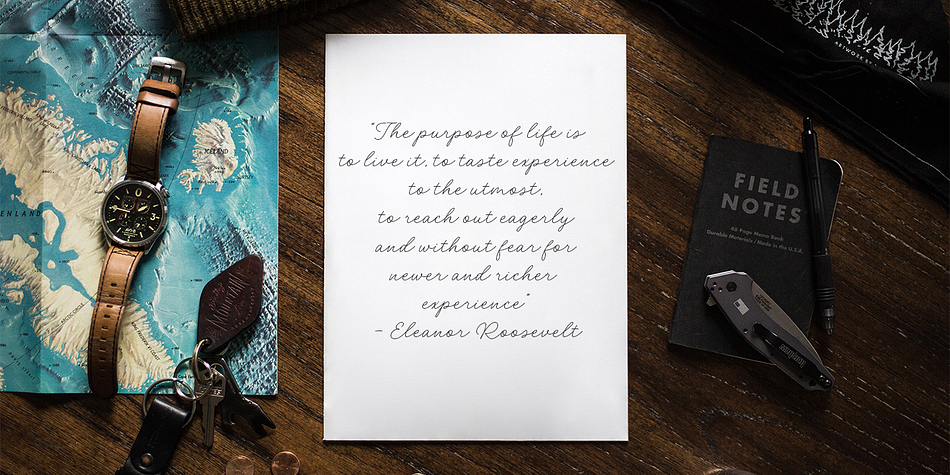 "The purpose of life is
to live it, to taste experience
to the utmost,
to reach out eagerly
and without fear for
newer and richer
experience"
- Eleanor Roosevelt
FIELD
NOTES
48 Page Memo Book
Durable Materials / Made in the U.S.A.
kershaw
ICELAND
ENLAND